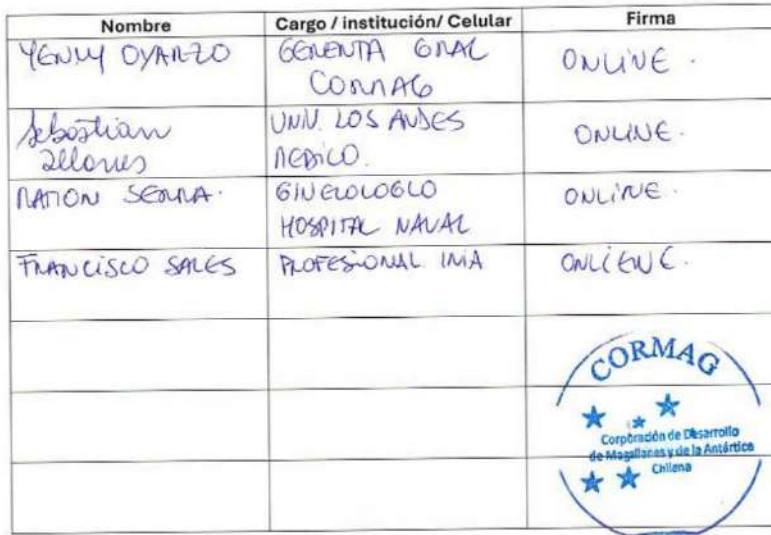 Nombre Cargo / institución/ Celular Firma
YENNY OYARZO GERENTA GRAL ONLINE.
CORMAG
Sebastian UNIV. LOS ANDES ONLINE.
Illanes MEDICO.
RAMON SERRA. GINECOLOGLO ONLINE.
HOSPITAL NAVAL
FRANCISCO SALES PROFESIONAL INIA ONLIENE.
CORMAG
Corporación de Desarrollo
de Magallanes y de la Antártica
Chilena